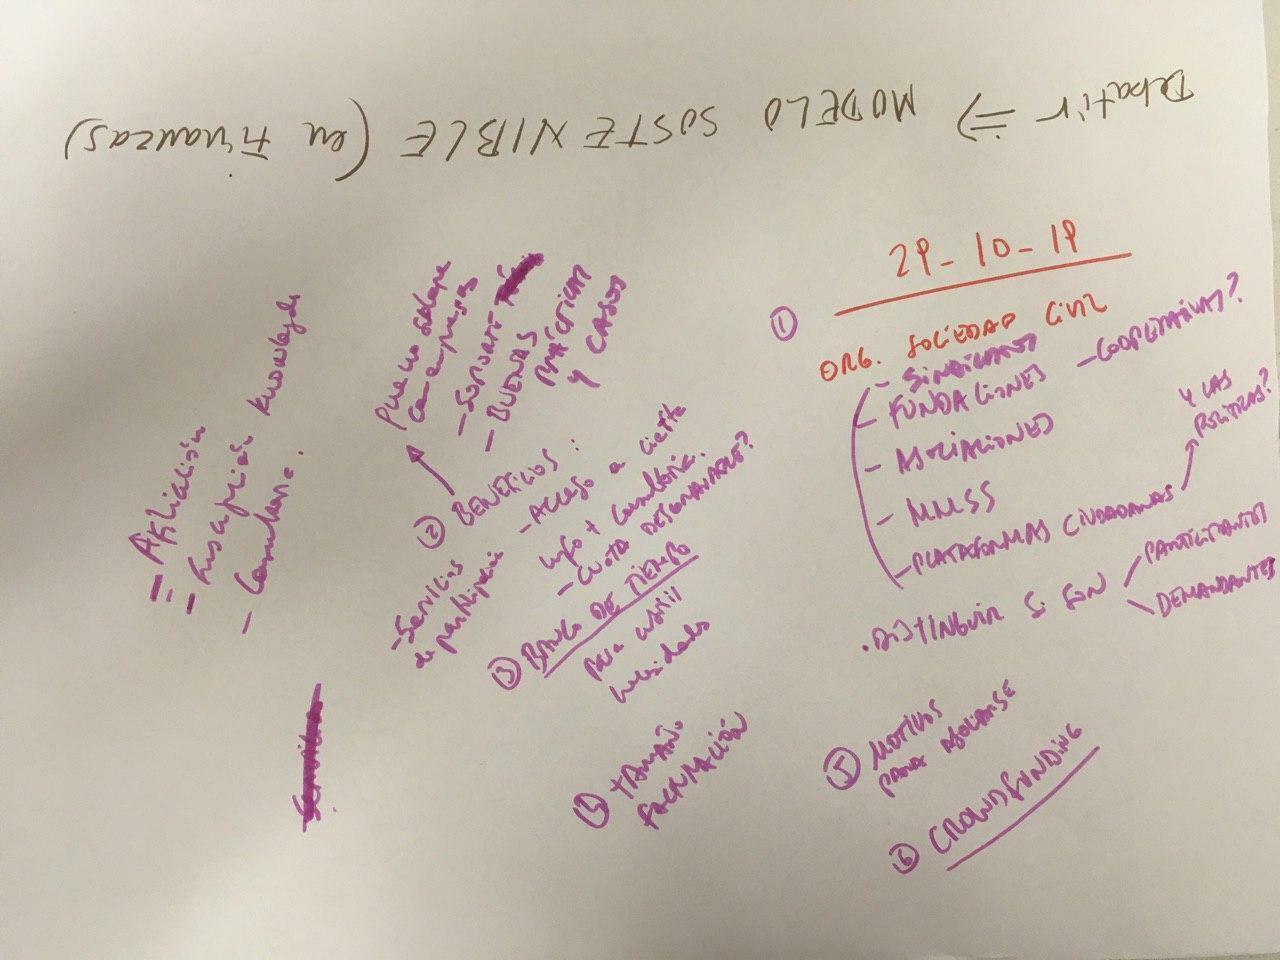 Debatir => MODELO SOSTENIBLE (en Finanzas)
29-10-19
① ORG. SOCIEDAD CIVIL
- SINDICATOS
- FUNDACIONES - COOPERATIVAS?
- ASOCIACIONES
- MMSS
- PLATAFORMAS CIUDADANAS
Y LAS
POLÍTICAS?
. DISTINGUIR SI SON
PARTICIPANTES
DEMANDANTES
② BENEFICIOS:
- Acceso a cierta
info + consultoría.
- CUOTA DESGRAVABLE?
- Servicios
de participación
con empresas
- BUENAS
PRÁCTICAS
Y CASOS
③ BANCO DE TIEMPO
para
④ TAMAÑO
FACTURACIÓN
⑤ MOTIVOS
PARA ASOCIARSE
⑥ CROWDFUNDING
- Afiliación
- knowledge
-